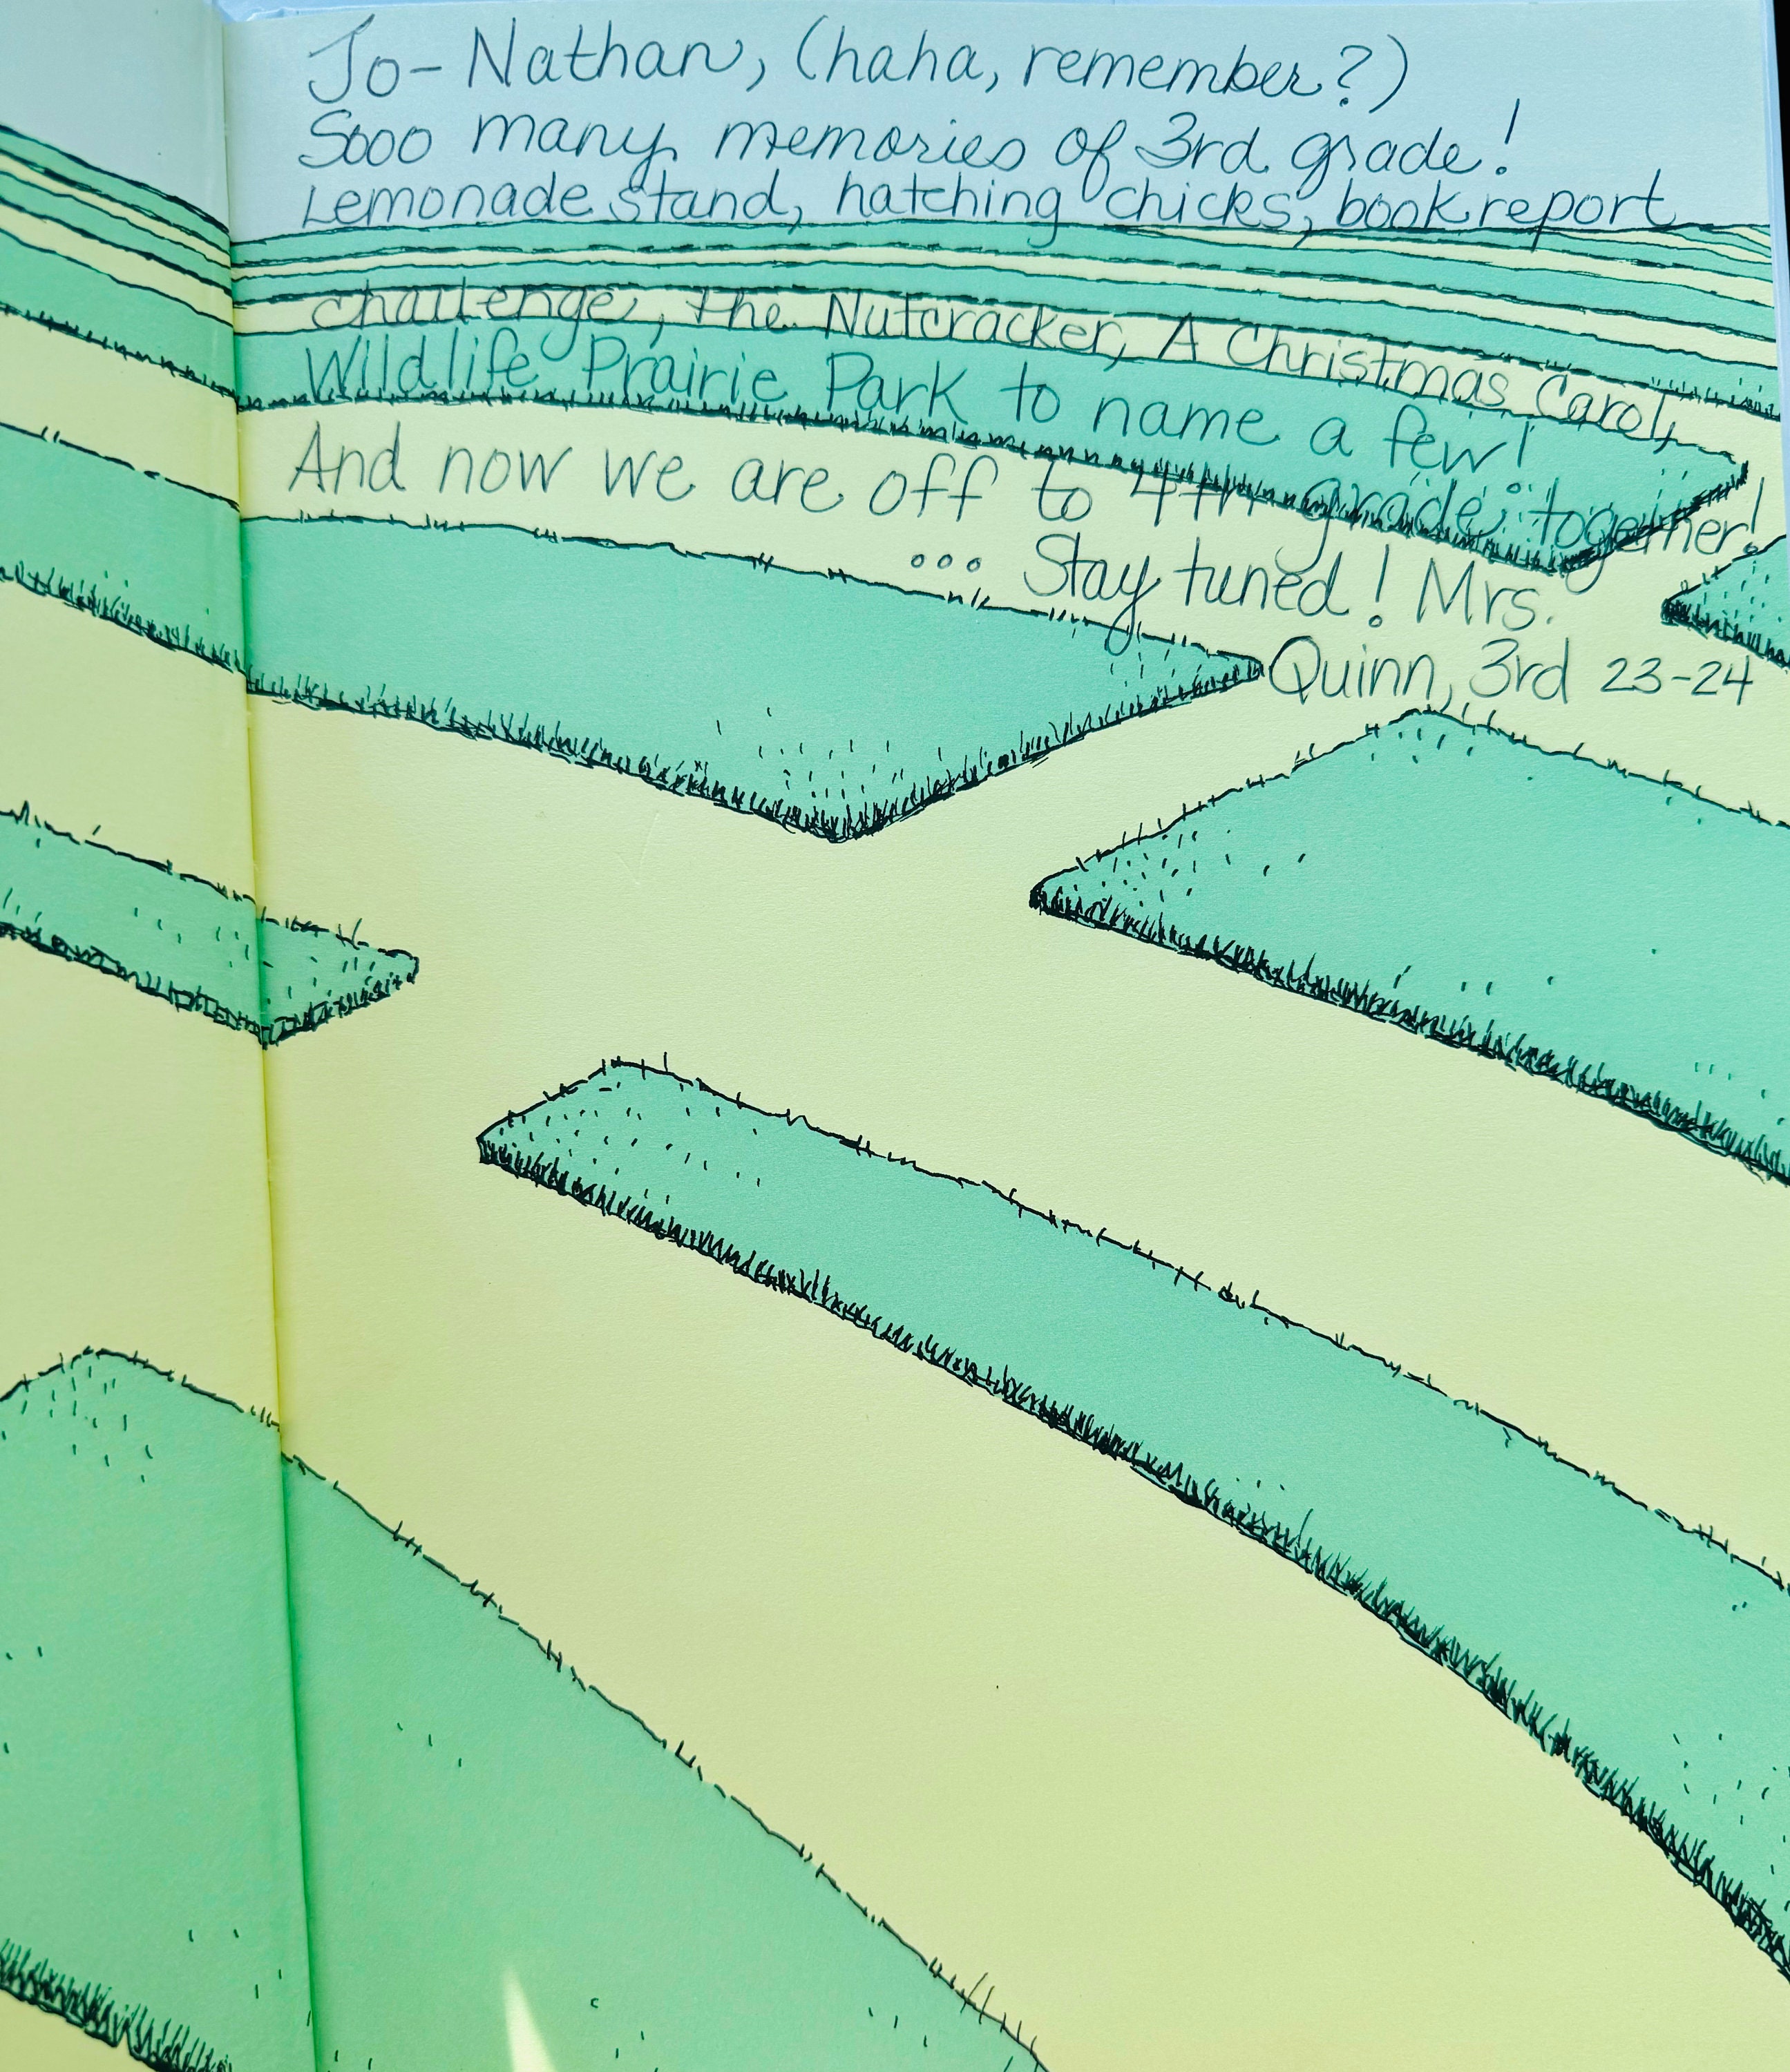 Jo-Nathan, (haha, remember?)
Sooo many memories of 3rd grade!
Lemonade stand, hatching chicks, book report
challenge, the Nutcracker, A Christmas Carol,
Wildlife Prairie Park to name a few!
And now we are off to 4th grade, together!
... Stay tuned! Mrs.
Quinn, 3rd 23-24